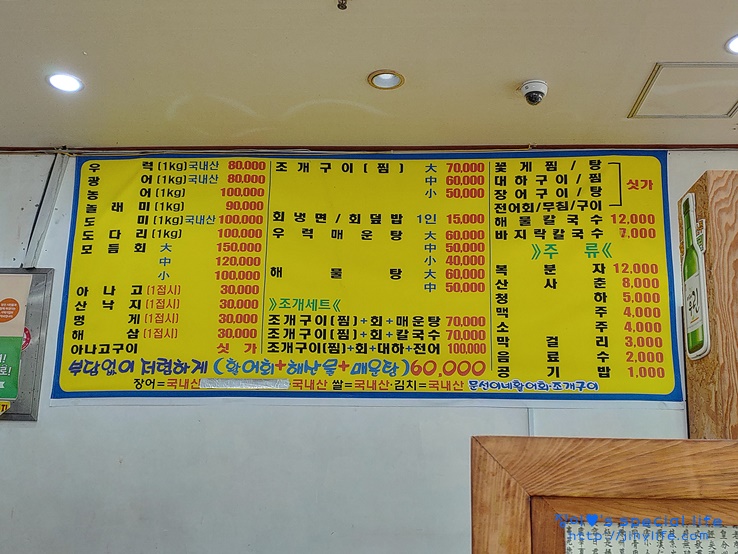 우 럭 (1kg)국내산 80.000
광 어 (1kg)국내산 80.000
농 어 (1kg) 100.000
놀 래 미 (1kg) 90.000
도 미 (1kg)국내산 100.000
도 다 리 (1kg) 100.000
모 듬 회 大 150.000
中 120.000
小 100.000
아 나 고 (1접시) 30.000
산 낙 지 (1접시) 30.000
멍 게 (1접시) 30.000
해 삼 (1접시) 30.000
아나고구이 싯 가
조 개 구 이 ( 찜 ) 大 70,000
中 60,000
小 50,000
회 냉 면 / 회 덮 밥 1인 15,000
우 럭 매 운 탕 大 60,000
中 50,000
小 40,000
해 물 탕 大 60,000
中 50,000
》조개세트《
조개구이(찜)+회+매운탕 70,000
조개구이(찜)+회+칼국수 70,000
조개구이(찜)+회+대하+전어 100,000
꽃 게 찜 / 탕
대 하 구 이 / 찜
장 어 구 이 / 탕
전어회/무침/구이
싯가
해 물 칼 국 수 12,000
바 지 락 칼 국 수 7,000
》주 류《
복 분 자 12,000
산 사 춘 8,000
청 하 5,000
맥 주 4,000
소 주 4,000
막 걸 리 3,000
음 료 수 2,000
공 기 밥 1,000
부담없이 저렴하게 (활어회+해산물+매운탕)60.000
장어=국내산 국내산 쌀=국내산·김치=국내산 문선이네활어회·조개구이
's special life
http://jinylife.com